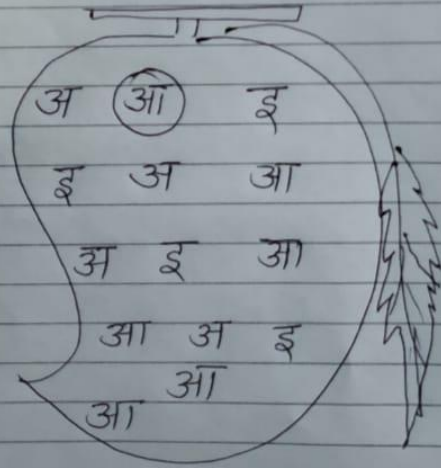 अ आ इ
इ अ आ
अ इ आ
आ अ इ
आ
आ